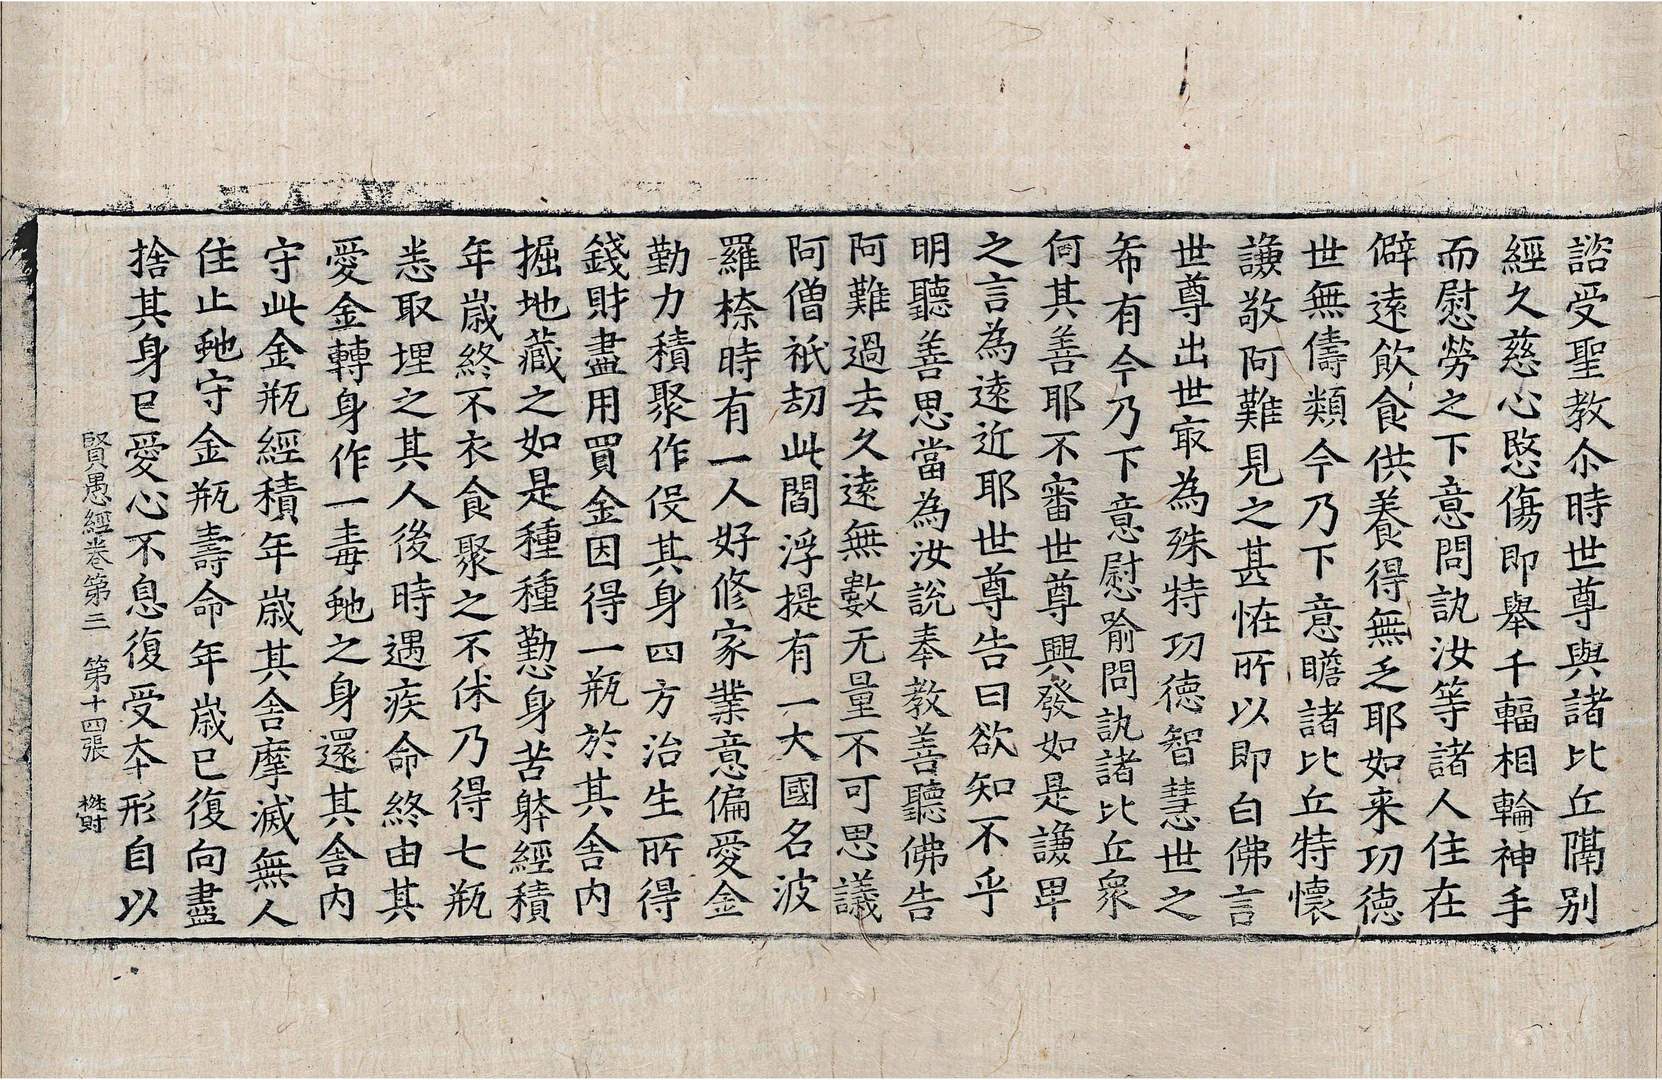 諮受聖教尒時世尊與諸比丘隔别
經久慈心愍傷即舉千輻相輪神手
而慰勞之下意問訊汝等諸人住在
僻遠飲食供養得無乏耶如来功德
世無儔類今乃下意瞻諸比丘特懷
謙敬阿難見之甚恠所以即白佛言
世尊出世㝡為殊特功德智慧世之
希有今乃下意慰喻問訊諸比丘衆
何其善耶不審世尊興發如是謙卑
之言為遠近耶世尊告曰欲知不乎
明聽善思當為汝說奉教善聽佛告
阿難過去久遠無數无量不可思議
阿僧祇劫此閻浮提有一大國名波
羅㮈時有一人好修家業意偏愛金
勤力積聚作役其身四方治生所得
錢財盡用買金因得一瓶於其舍内
掘地藏之如是種種懃身苦躰經積
年歲終不衣食聚之不休乃得七瓶
悉取埋之其人後時遇疾命終由其
愛金轉身作一毒虵之身還其舍内
守此金瓶經積年歲其舍摩滅無人
住止虵守金瓶壽命年歲已復向盡
捨其身已愛心不息復受夲形自以
賢愚經卷第三 第十四張